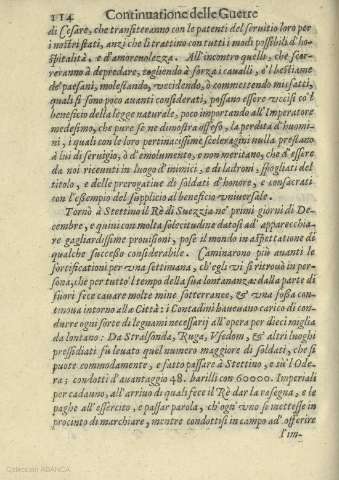 114 Continuatione delle Guerre
di Cesare, che transiteranno con le patenti del seruitio loro per
i nostri stati, anzi che li trattino con tutti i modi possibili d'ho-
spitalità, e d'amoreuolezza. All'incontro quelli, che scor-
reranno à depredare, togliendo à forza i caualli, e'l bestiame
de' paesani, molestando, vccidendo, ò commettendo misfatti,
quali si sono poco auanti considerati, possano essere vccisi co'l
beneficio della legge naturale, poco importando all'Imperatore
medesimo, che pure se ne dimostra offeso, la perdita d'huomi-
ni, i quali con le loro pertinacissime sceleragini nulla prestano
à lui di seruigio, ò d'emolumento, e non meritano, che d'essere
da noi riceuuti in luogo d'inimici, e di ladroni, spogliati del
titolo, e delle prerogatiue di soldati d'honore, e consacrati
con l'essempio del supplicio al beneficio vniuersale.
Tornò à Stettino il Rè di Suezzia ne' primi giorni di De-
cembre, e quiui con molta solecitudine datosi ad apparecchia-
re gagliardissime prouisioni, pose il mondo in aspettatione di
qualche successo considerabile. Caminarono più auanti le
fortificationi per vna settimana, ch'egli vi si ritrouò in per-
sona, che per tutto'l tempo della sua lontananza: dalla parte di
fuori fece cauare molte mine sotterranee, & vna fossa con-
tinoua intorno alla Città: i Contadini haueuano carico di con-
durre ogni sorte di legnami necessarij all'opera per dieci miglia
da lontano: Da Stralsonda, Ruga, Vsedom, & altri luoghi
pressediati fù leuato quel numero maggiore di soldati, che si
puote commodamente, e fatto passare à Stettino, e sù l'Ode-
ra; condotti d'auantaggio 48. barilli con 60000. Imperiali
per cadauno, all'arriuo di quali fece il Rè dar la rasegna, e le
paghe all'essercito, e passar parola, ch'ogn'vno se mettesse in
procinto di marchiare, mentre condottisi in campo ad'offerire
l'im-
Colección ABANCA